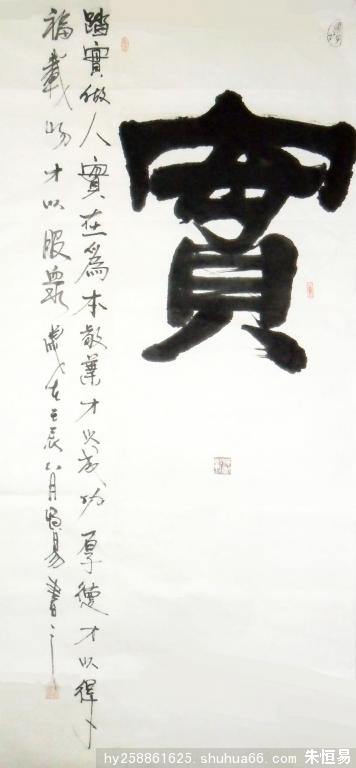 實
踏實做人實在為本敬業才以成功厚德才以得
福載物才以服眾歲在壬辰八月恒易書之
hy258861625.shuhua66.com 朱恒易